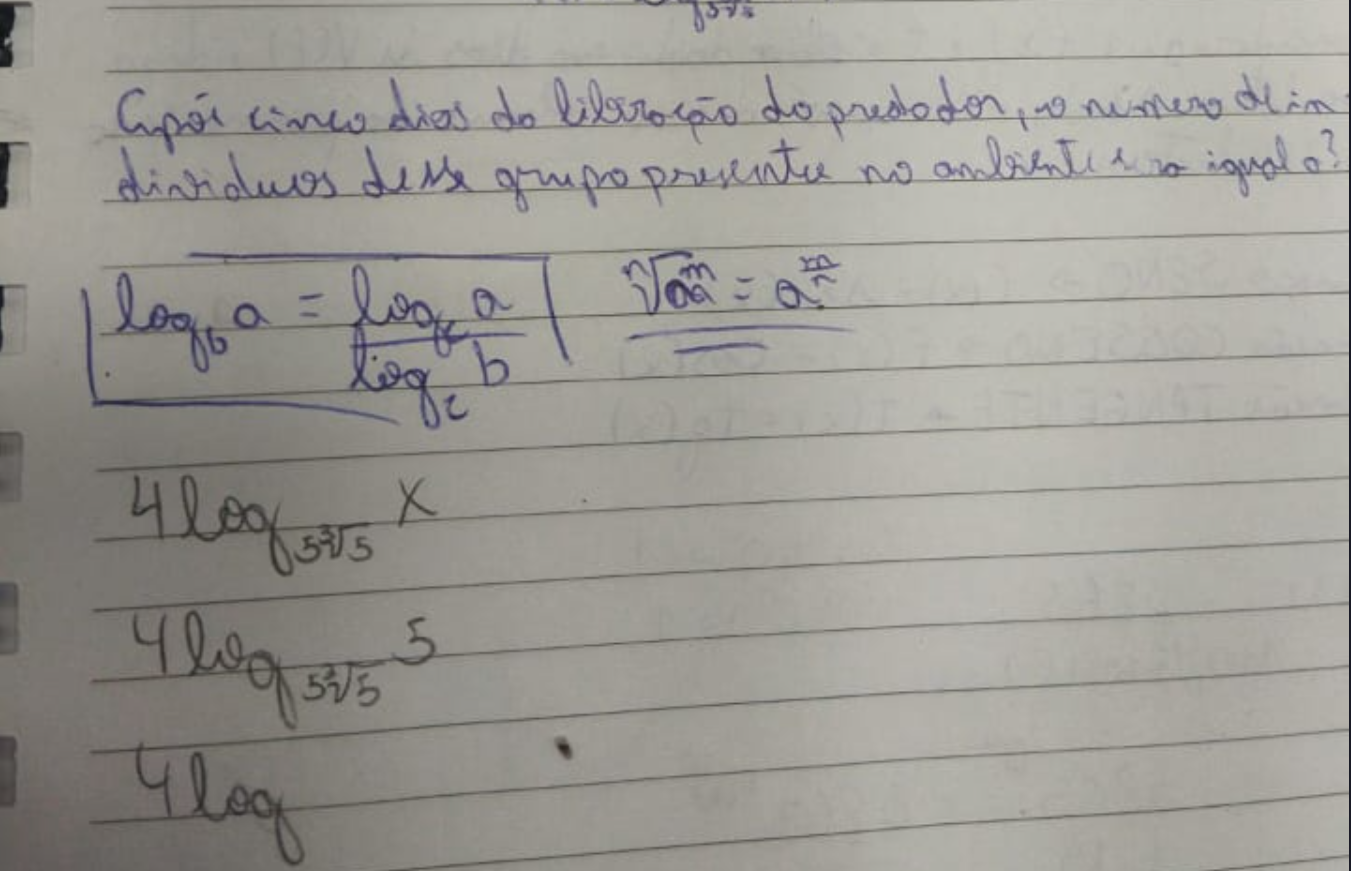 Após cinco dias da liberação do predador, o número de in
divíduos desse grupo presente no ambiente era igual a?
log_b a = log_c a / log_c b
ⁿ√a^m = a^(m/n)
4 log_{5∛5} X
4 log_{5∛5} 5
4 log